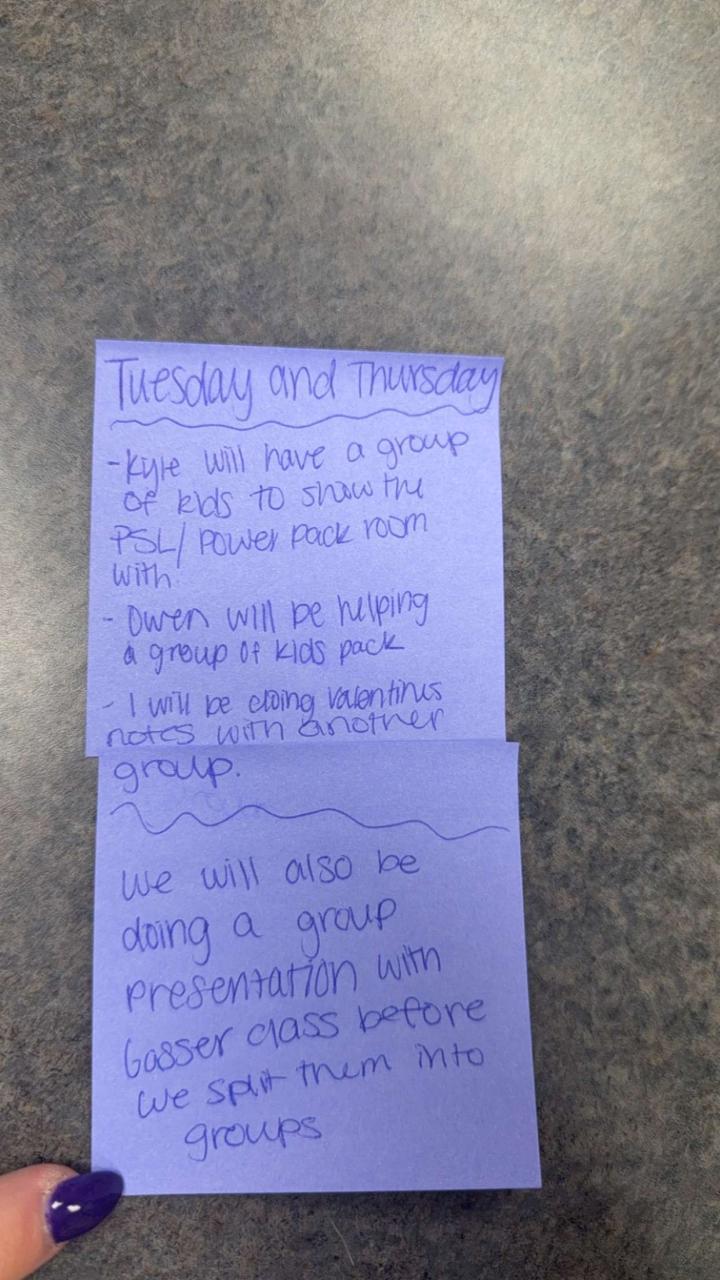 Tuesday and Thursday
- Kyle will have a group
of kids to show the
PSL/ Power pack room
with.
- Owen will be helping
a group of kids pack
- I will be doing valentines
notes with another
group.
We will also be
doing a group
presentation with
Gasser class before
we split them into
groups